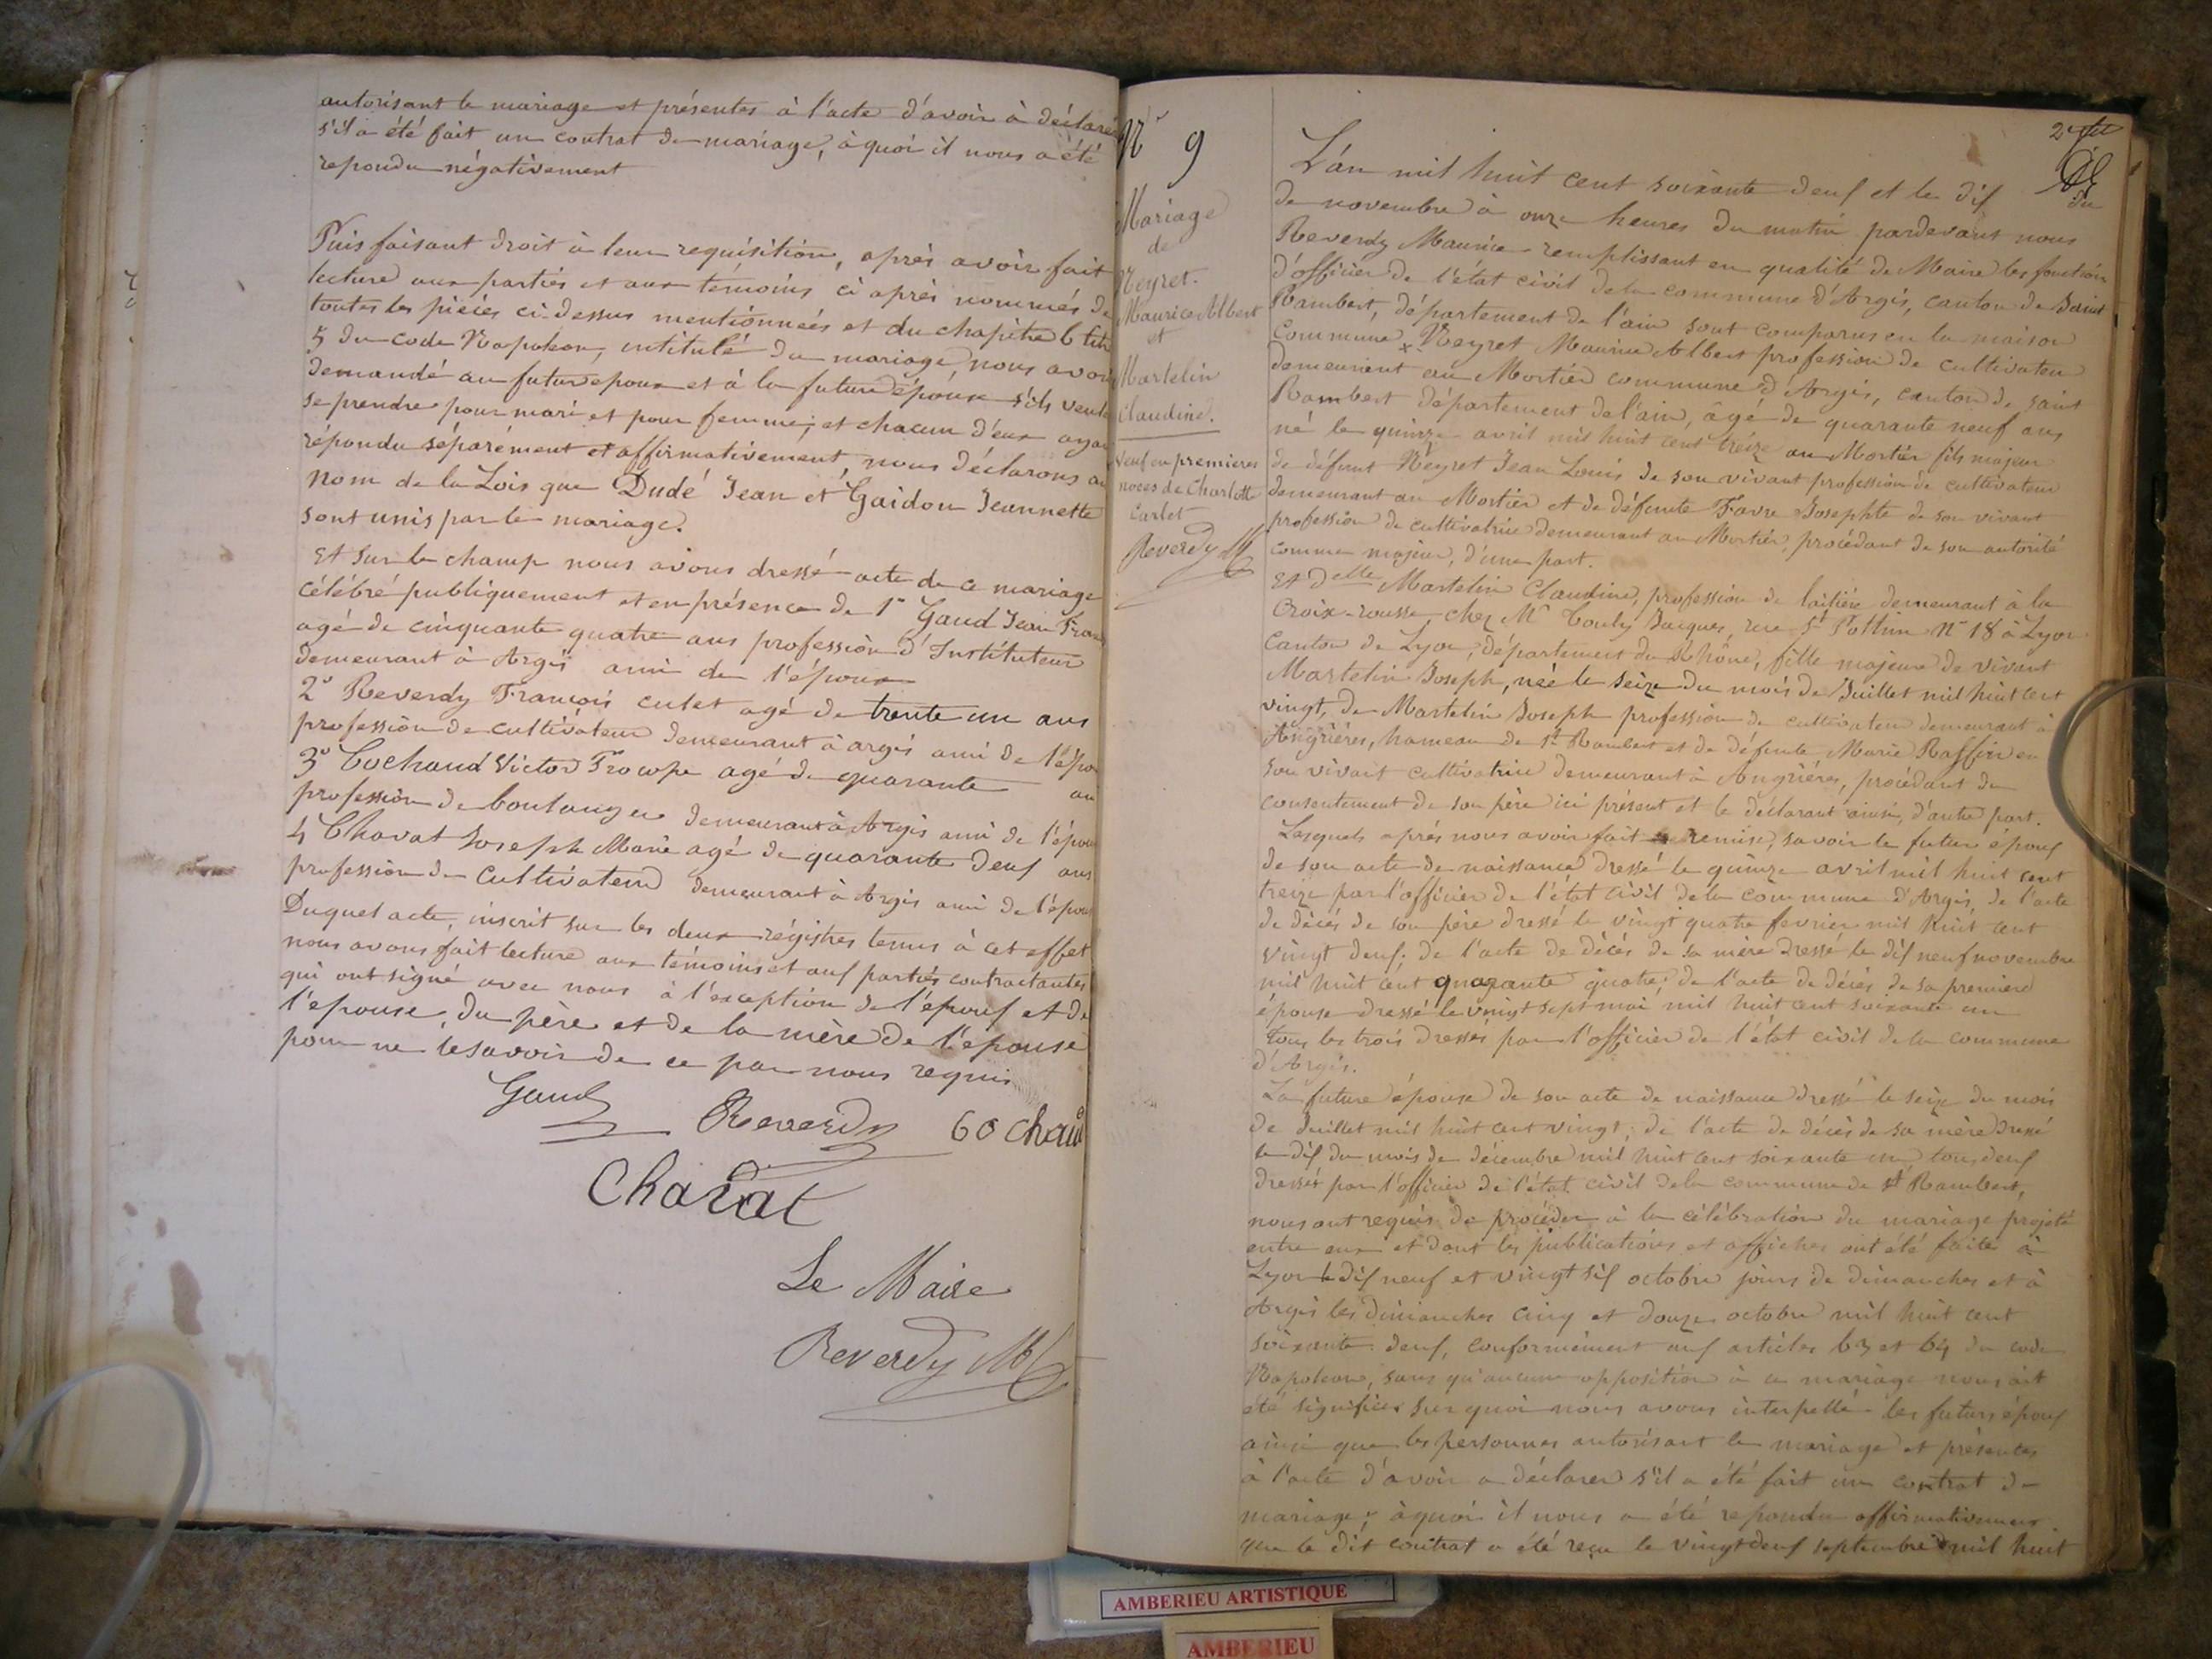 autorisant le mariage et présentes à l'acte d'avoir à déclarer
s'il a été fait un contrat de mariage, à quoi il nous a été
repondu négativement
Puis faisant droit à leur requisition, après avoir fait
lecture aux parties et aux témoins ci après nommés de
toutes les pièces ci-dessus mentionneés et du chapitre 6 titre
5 du code Napoléon, intitulé du mariage, nous avons
demandé au futur epoux et à la future épouse s'ils veulent
se prendre pour mari et pour femme; et chacun d'eux ayant
répondu séparément et affirmativement, nous déclarons au
nom de la Lois que Dudé Jean et Gaidon Jeannette
sont unis par le mariage.
Et sur le champ nous avons dressé acte de ce mariage
célébré publiquement et en présence de 1° Gaud Jean Fran
agé de cinquante quatre ans profession d'Instituteur
demeurant à Argis ami de l'époux
2° Reverdy François culet agé de trente un ans
profession de cultivateur demeurant à argis ami de l'épo
3° Cochaud Victor Procope agé de quarante an
profession de boulanger demeurant à Argis ami de l'épou
4 Chavat Joseph Marie agé de quarante deux ans
profession de cultivateur demeurant à Argis ami de l'épou
Duquel acte, inscrit sur les deux régistres tenus à cet effet
nous avons fait lecture aux témoins et aux parties contractantes
qui ont signé avec nous à l'exception de l'époux et de
l'épouse, du père et de la mère de l'épouse
pour ne le savoir de ce par nous requis
Gaud
Reverdy
Cochaud
Chavat
Le Maire
Reverdy M
N° 9
Mariage
de
Neyret
Maurice Albert
et
Martelin
Claudine.
veuf en premieres
noces de Charlotte
Carlet
Reverdy M
L'an mil huit cent soixante deux et le dix du
de novembre à onze heures du matin pardevant nous
Reverdy Maurice remplissant en qualité de Maire les fonctions
d'officier de l'état civil de la commune d'Argis, canton de Saint
Rambert, département de l'ain sont comparus en la maison
commune Neyret Maurice Albert profession de cultivateur
demeurient au Mortier commune d'Argis, canton de saint
Rambert département de l'ain, âgé de quarante neuf ans
né le quinze avril mil huit cent treize au Mortier fils majeur
de défunt Neyret Jean Louis de son vivant profession de cultivateur
demeurant au Mortier et de défunte Favre Josephte de son vivant
profession de cultivatrice demeurant au Mortier, procédant de son autorité
comme majeur, d'une part.
Et Delle Martelin Claudine, profession de laitière demeurant à la
Croix-rousse chez Mr Jacques, rue St Pottin N° 18 à Lyon
Canton de Lyon, département du Rhône, fille majeure de vivant
Martelin Joseph, née le seize du mois de Juillet mil huit cent
vingt, de Martelin Joseph profession de cultivateur demeurant à
Angrières, hameau de St Rambert et de défunte Marie Raffin en
son vivant cultivatrice demeurant à Angrières, procédant du
consentement de son père ici présent et le déclarant ainsi, d'autre part.
Lesquels après nous avoir fait remise, savoir le futur époux
de son acte de naissance dressé le quinze avril mil huit cent
treize par l'officier de l'état civil de la commune d'Argis, de l'acte
de décès de son père dressé le vingt quatre fevrier mil huit cent
vingt deux; de l'acte de décès de sa mère dressé le dix neuf novembre
mil huit cent quarante quatre; de l'acte de décès de sa première
épouse dressé le vingt sept mai mil huit cent soixante un
tous les trois dressés par l'officier de l'état civil de la commune
d'Argis.
La future épouse de son acte de naissance dressé le seize du mois
de Juillet mil huit cent vingt; de l'acte de décès de sa mère dressé
le dix du mois de décembre mil huit cent soixante un tous deux
dressés par l'officier de l'état civil de la commune de St Rambert,
nous ont requis de procéder à la célébration du mariage projeté
entre eux et dont les publications et affiches ont été faites à
Lyon le dix neuf et vingt six octobre jours de dimanches et à
Argis les dimanches cinq et douze octobre mil huit cent
soixante deux, conformément aux articles 63 et 64 du code
Napoleon, sans qu'aucune opposition à ce mariage nous ait
été signifiée sur quoi nous avons interpellé les futurs époux
ainsi que les personnes autorisant le mariage et présentes
à l'acte d'avoir a déclarer s'il a été fait un contrat de
mariage; à quoi il nous a été repondu affirmativement
que le dit contrat a été reçu le vingt deux septembre mil huit
AMBERIEU ARTISTIQUE
AMBERIEU